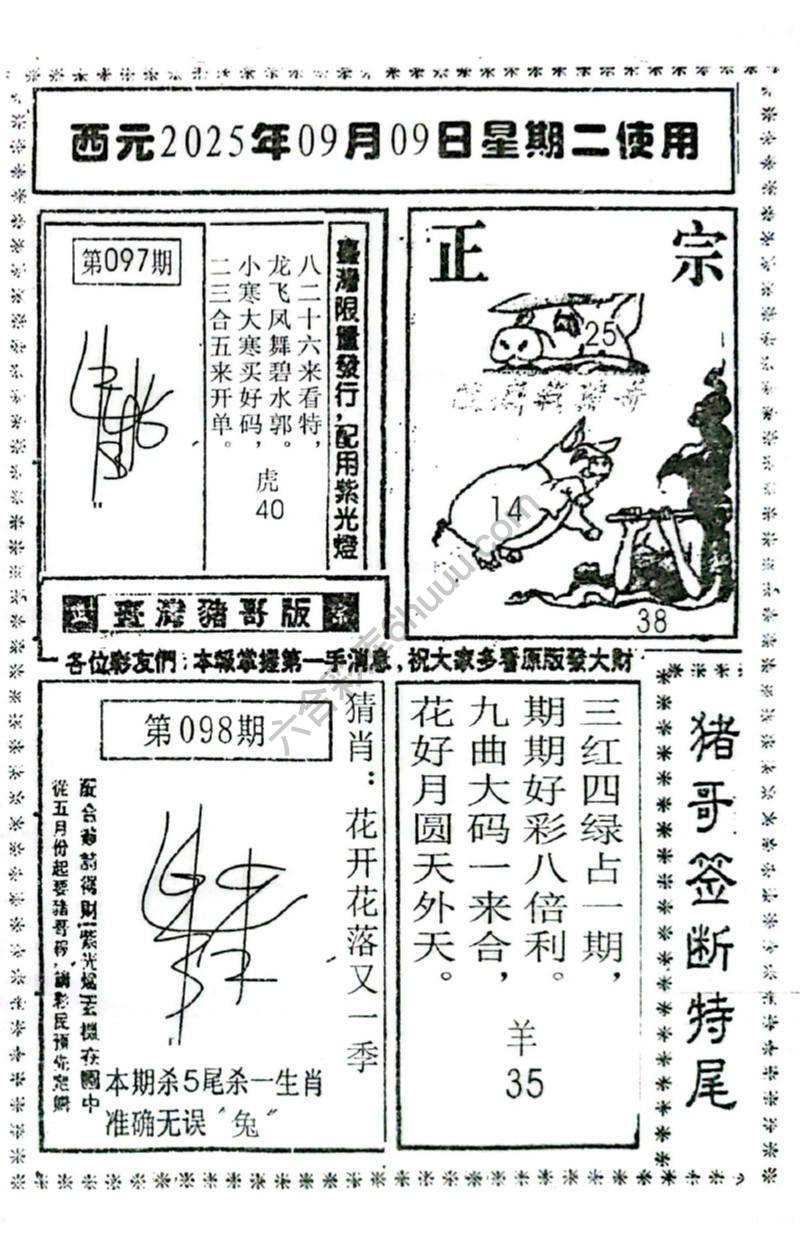 西元2025年09月09日星期二使用
第097期
八二十六来看特，
龙飞凤舞碧水郭。
小寒大寒买好码，
二三合五来开单。
虎
40
臺灣限量發行，配用紫光燈
正宗
25
14
38
臺灣豬哥版
各位彩友們：本報掌握第一手消息，祝大家多看原版發大財
第098期
猜肖：花开花落又一季
從五月份起要豬哥報，請彩民預先定購
本期杀5尾杀一生肖
准确无误“兔”
三红四绿占一期，
期期好彩八倍利。
九曲大码一来合，
花好月圆天外天。
羊
35
猪哥签断特尾
六合彩库6huuu.com